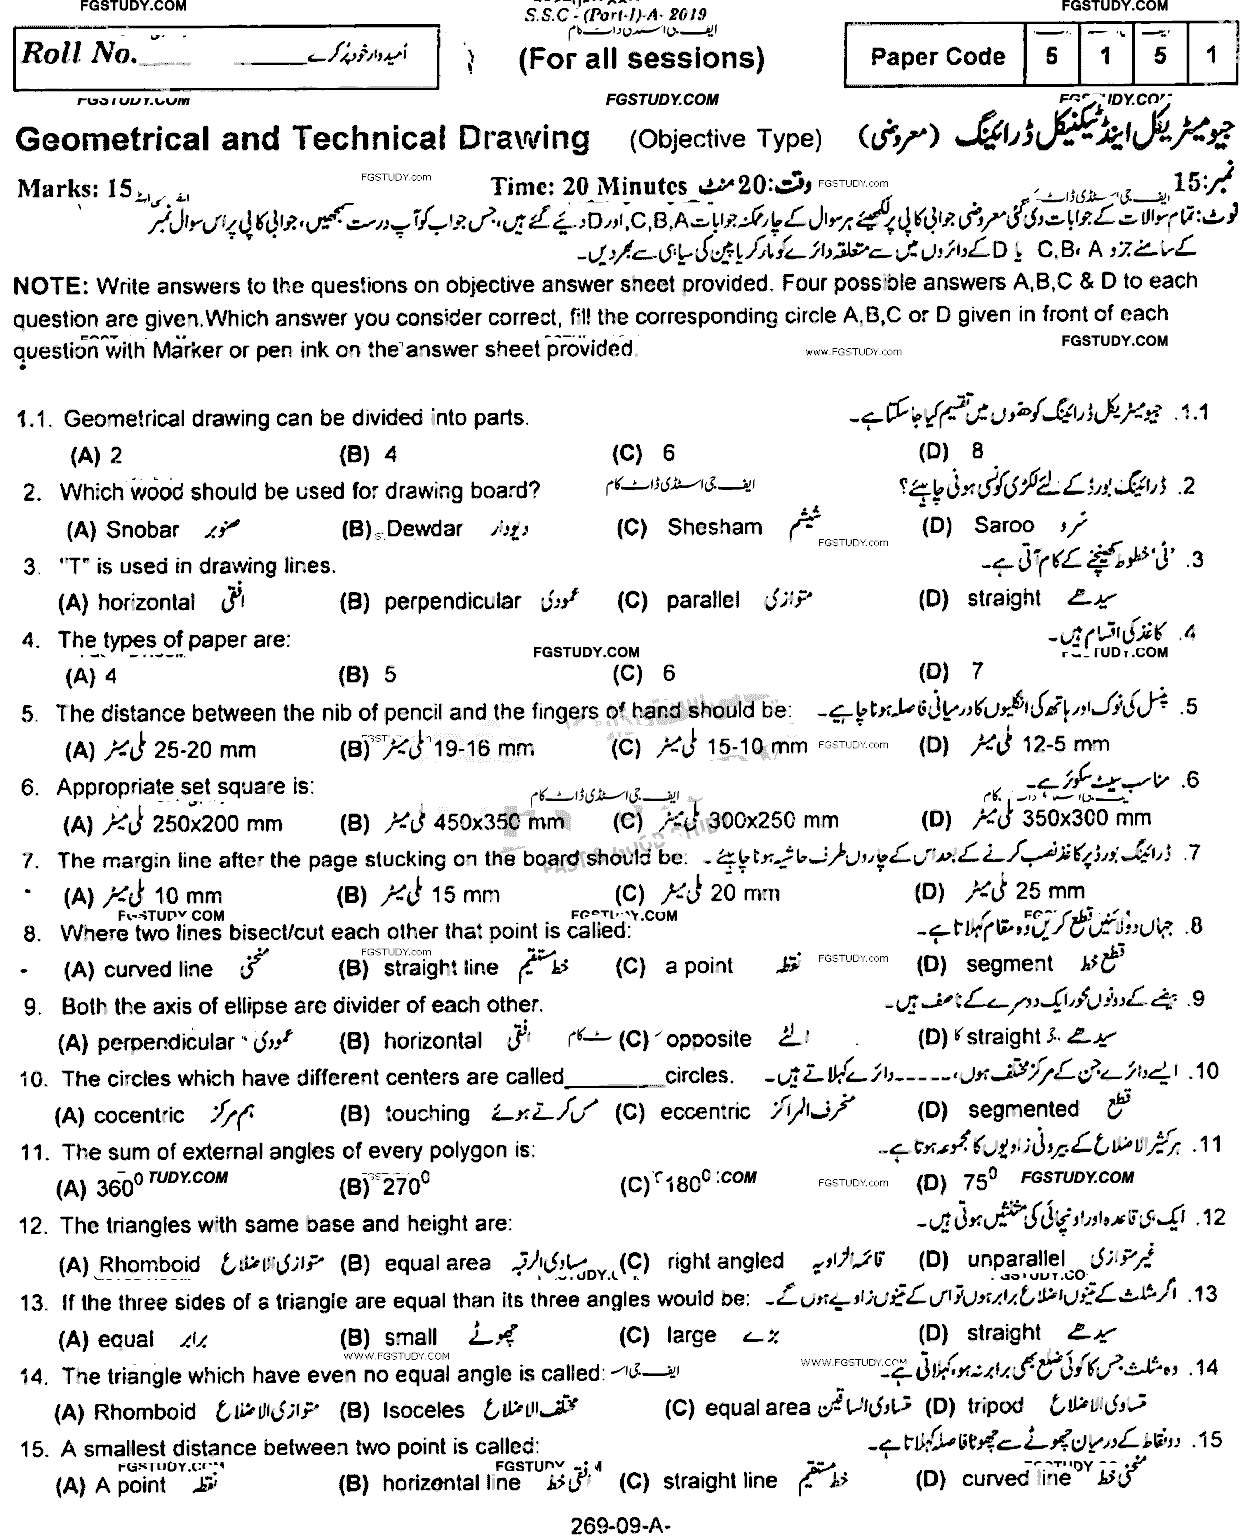 FGSTUDY.COM S.S.C - (Part-I)-A- 2019 FGSTUDY.COM
ایف جی اسٹڈی ڈاٹ کام
Roll No. امیدوار خود پُر کرے (For all sessions) Paper Code 5 1 5 1
FGSTUDY.COM FGSTUDY.COM
Geometrical and Technical Drawing (Objective Type) جیومیٹریکل اینڈ ٹیکنیکل ڈرائینگ (معروضی)
Marks: 15 FGSTUDY.com Time: 20 Minutes وقت: 20 منٹ FGSTUDY.com نمبر: 15
نوٹ: تمام سوالات کے جوابات دی گئی معروضی جوابی کاپی پر لکھیئے ہر سوال کے چار ممکنہ جوابات A,B,C اور D دیئے گئے ہیں، جس جواب کو آپ درست سمجھیں، جوابی کاپی پر اس سوال نمبر
کے سامنے جزو A، B، C یا D کے دائروں میں سے متعلقہ دائرے کو مارکر یا پین کی سیاہی سے بھر دیں۔
NOTE: Write answers to the questions on objective answer sheet provided. Four possible answers A,B,C & D to each
question are given.Which answer you consider correct, fill the corresponding circle A,B,C or D given in front of each
question with Marker or pen ink on the answer sheet provided. www.FGSTUDY.com FGSTUDY.COM
1.1. Geometrical drawing can be divided into parts. 1.1. جیومیٹریکل ڈرائینگ کو حصّوں میں تقسیم کیا جا سکتا ہے۔
(A) 2 (B) 4 (C) 6 (D) 8
2. Which wood should be used for drawing board? ایف جی اسٹڈی ڈاٹ کام 2. ڈرائینگ بورڈ کے لئے لکڑی کونسی ہونی چاہیئے؟
(A) Snobar صنوبر (B) Dewdar دیودار (C) Shesham شیشم (D) Saroo سرو
FGSTUDY.com
3. "T" is used in drawing lines. 3. 'ٹی' خطوط کھینچنے کے کام آتی ہے۔
(A) horizontal افقی (B) perpendicular عمودی (C) parallel متوازی (D) straight سیدھے
4. The types of paper are: 4. کاغذ کی اقسام ہیں۔
FGSTUDY.COM
(A) 4 (B) 5 (C) 6 (D) 7
5. The distance between the nib of pencil and the fingers of hand should be: 5. پنسل کی نوک اور ہاتھ کی انگلیوں کا درمیانی فاصلہ ہونا چاہے۔
(A) ملی میٹر 25-20 mm (B) ملی میٹر 19-16 mm (C) ملی میٹر 15-10 mm FGSTUDY.com (D) ملی میٹر 12-5 mm
6. Appropriate set square is: ایف جی اسٹڈی ڈاٹ کام 6. مناسب سیٹ سکوئر ہے۔
(A) ملی میٹر 250x200 mm (B) ملی میٹر 450x350 mm (C) ملی میٹر 300x250 mm (D) ملی میٹر 350x300 mm
7. The margin line after the page stucking on the board should be: 7. ڈرائینگ بورڈ پر کاغذ نصب کرنے کے بعد اس کے چاروں طرف حاشیہ ہونا چاہیئے۔
(A) ملی میٹر 10 mm (B) ملی میٹر 15 mm (C) ملی میٹر 20 mm (D) ملی میٹر 25 mm
FGSTUDY COM
8. Where two lines bisect/cut each other that point is called: 8. جہاں دو لائنیں قطع کریں وہ مقام کہلاتا ہے۔
FGSTUDY.com
(A) curved line منحنی (B) straight line خط مستقیم (C) a point نقطہ FGSTUDY.com (D) segment قطع خط
9. Both the axis of ellipse are divider of each other. 9. بیضے کے دونوں محور ایک دوسرے کے ناصف ہیں۔
(A) perpendicular عمودی (B) horizontal افقی (C) opposite الٹے (D) straight سیدھے
10. The circles which have different centers are called________circles. 10. ایسے دائرے جن کے مرکز مختلف ہوں،------دائرے کہلاتے ہیں۔
(A) cocentric ہم مرکز (B) touching مس کرتے ہوئے (C) eccentric منحرف المراکز (D) segmented قطع
11. The sum of external angles of every polygon is: 11. ہر کثیر الاضلاع کے بیرونی زاویوں کا مجموعہ ہوتا ہے۔
(A) 360⁰ TUDY.COM (B) 270⁰ (C) 180⁰ COM FGSTUDY.com (D) 75⁰ FGSTUDY.COM
12. The triangles with same base and height are: 12. ایک ہی قاعدہ اور اونچائی کی مثلثیں ہوتی ہیں۔
(A) Rhomboid متوازی الاضلاع (B) equal area مساوی الرقبہ (C) right angled قائمہ الزاویہ (D) unparallel غیر متوازی
13. If the three sides of a triangle are equal than its three angles would be: 13. اگر مثلث کے تینوں اضلاع برابر ہوں تو اس کے تینوں زاویے ہوں گے۔
(A) equal برابر (B) small چھوٹے (C) large بڑے (D) straight سیدھے
WWW.FGSTUDY.COM
14. The triangle which have even no equal angle is called: WWW.FGSTUDY.COM 14. وہ مثلث جس کا کوئی ضلع بھی برابر نہ ہو، کہلاتی ہے۔
(A) Rhomboid متوازی الاضلاع (B) Isoceles مختلف الاضلاع (C) equal area متساوی الساقین (D) tripod متساوی الاضلاع
15. A smallest distance between two point is called: 15. دو نقاط کے درمیان چھوٹے سے چھوٹا فاصلہ کہلاتا ہے۔
(A) A point نقطہ (B) horizontal line افقی خط (C) straight line خط مستقیم (D) curved line منحنی خط
269-09-A-